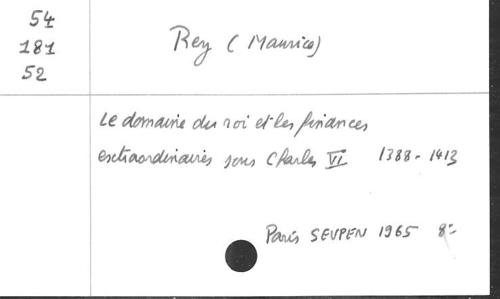 54
181
52
Rey (Maurice)
Le domaine du roi et les finances
extraordinaires sous Charles VI 1388-1413
Paris SEVPEN 1965 8=